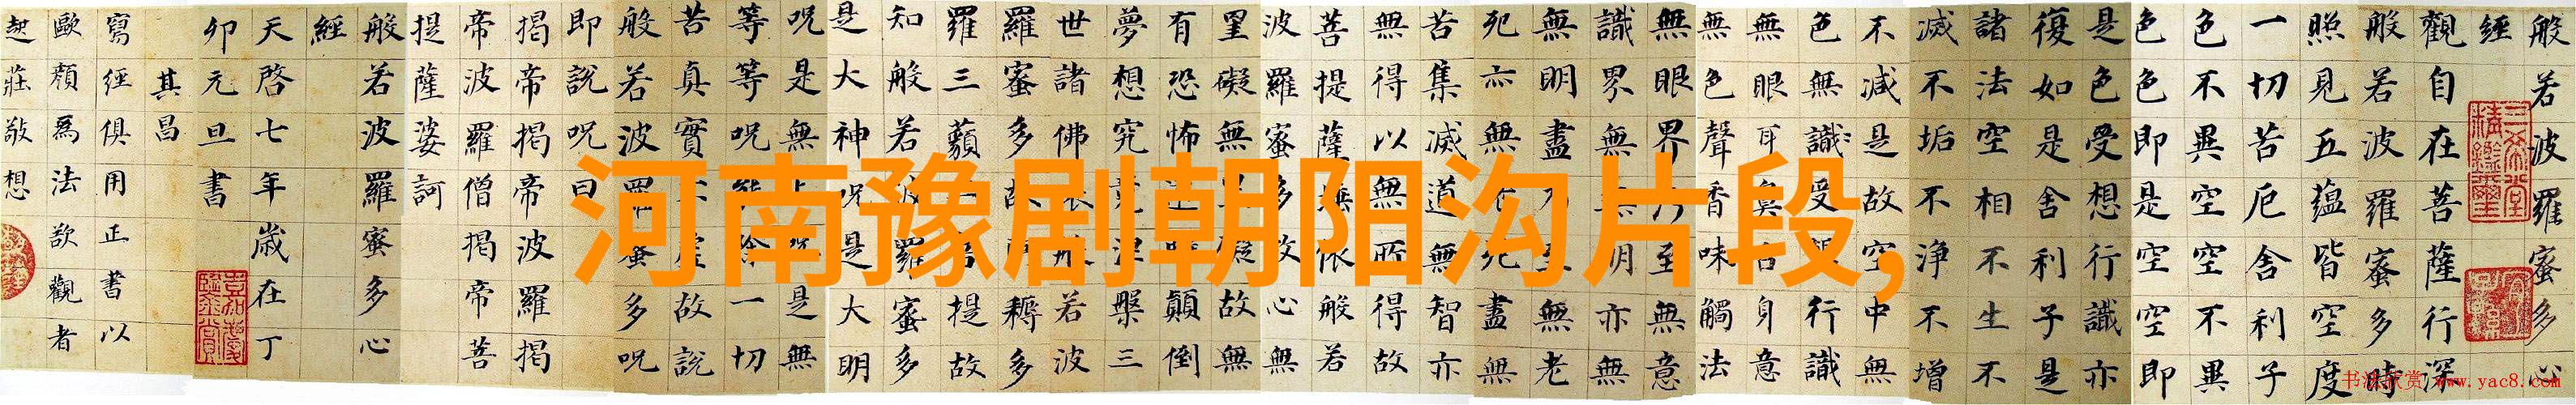 河南豫剧朝阳沟片段,
般若波羅蜜多心
經
觀自在菩薩行深
般若波羅蜜多時
照見五蘊皆空度
一切苦厄舍利子
色不異空空不異
色色即是空空即
是色受想行識亦
復如是舍利子是
諸法空相不生不
滅不垢不淨不增
不減是故空中無
色無識受想行識
無眼耳鼻舌身意
無色聲香味觸法
無眼界乃至無意
識界無無明亦無
無明盡乃至無老
死亦無老死盡無
苦集滅道無智亦
無得以無所得故
菩提薩埵依般若
波羅蜜多故心無
罣礙無罣礙故無
有恐怖遠離顛倒
夢想究竟涅槃三
世諸佛依般若波
羅蜜多故得耨多
羅三藐三菩提故
知般若波羅蜜多
是大神呪是大明
呪是無上呪是無
等等呪能除一切
苦真實不虛故說
般若波羅蜜多呪
即說呪曰
揭帝揭帝波羅揭
帝波羅僧揭帝菩
提薩婆訶
般若波羅蜜多心
經
天啓七年歲在丁
卯元旦書
其昌
寫經俱用正書以
歐顏爲法欲觀者
起莊敬想
书法欣赏 www.yac8.com